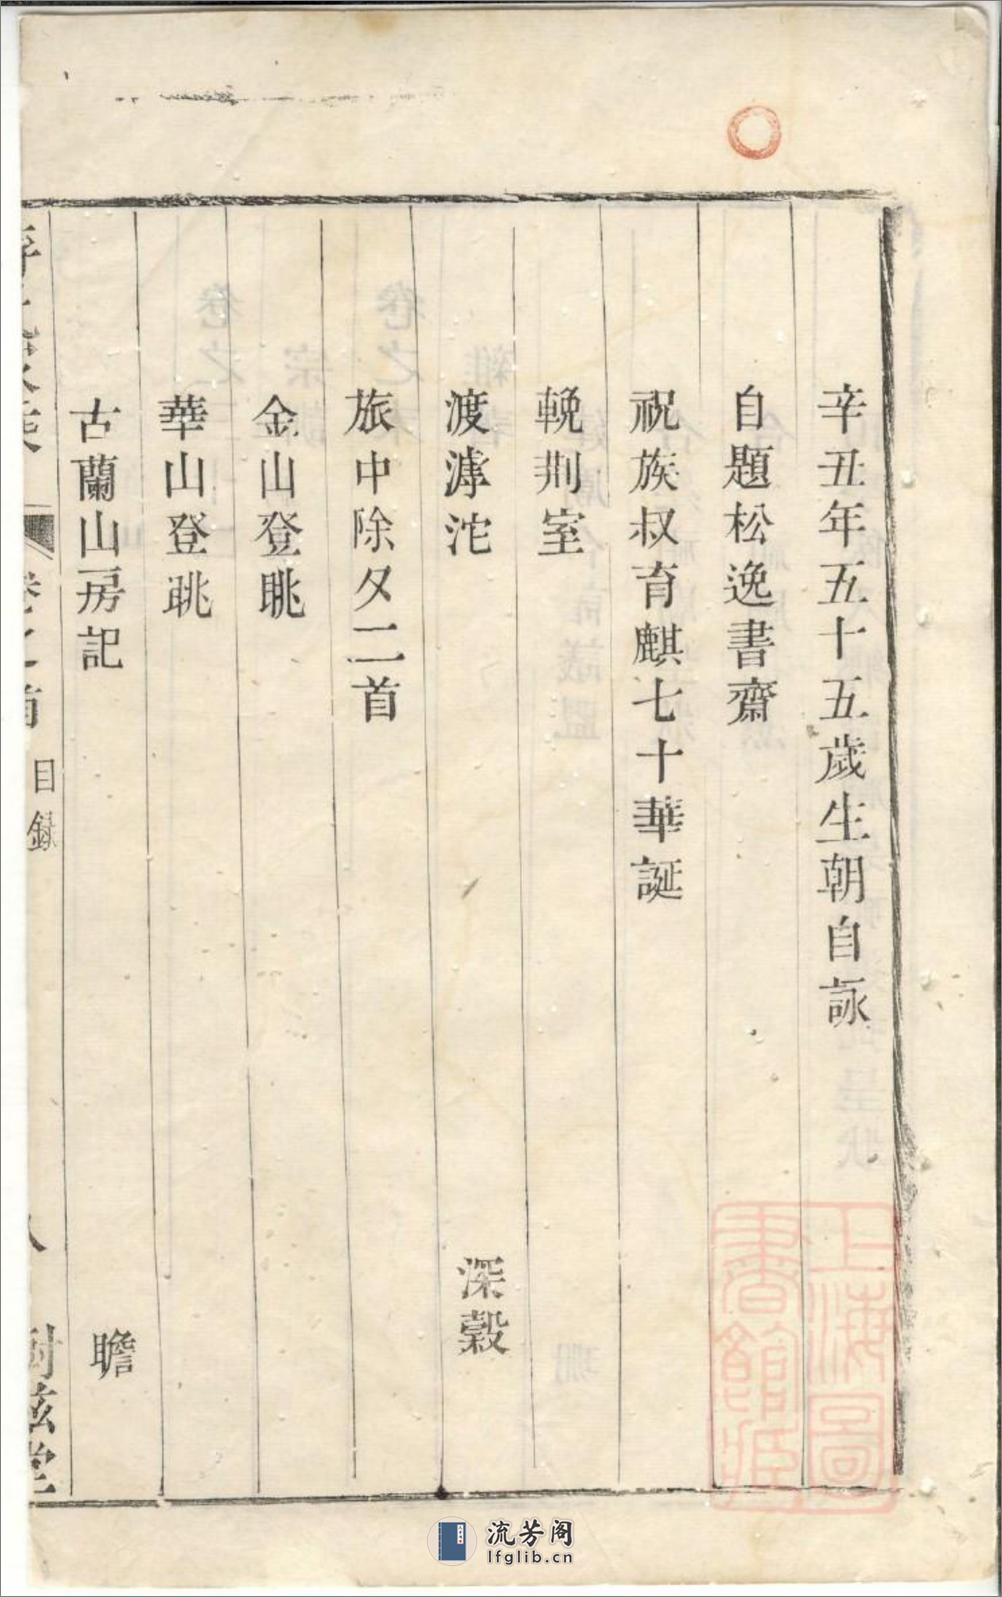 辛丑年五十五歲生朝自詠
自題松逸書齋
祝族叔育麒七十華誕
輓荆室
渡滹沱 深穀
旅中除夕二首
金山登眺
華山登眺
古蘭山房記 瞻
卷之首 目錄 八
上海圖書館藏
流芳阁
lfglib.cn